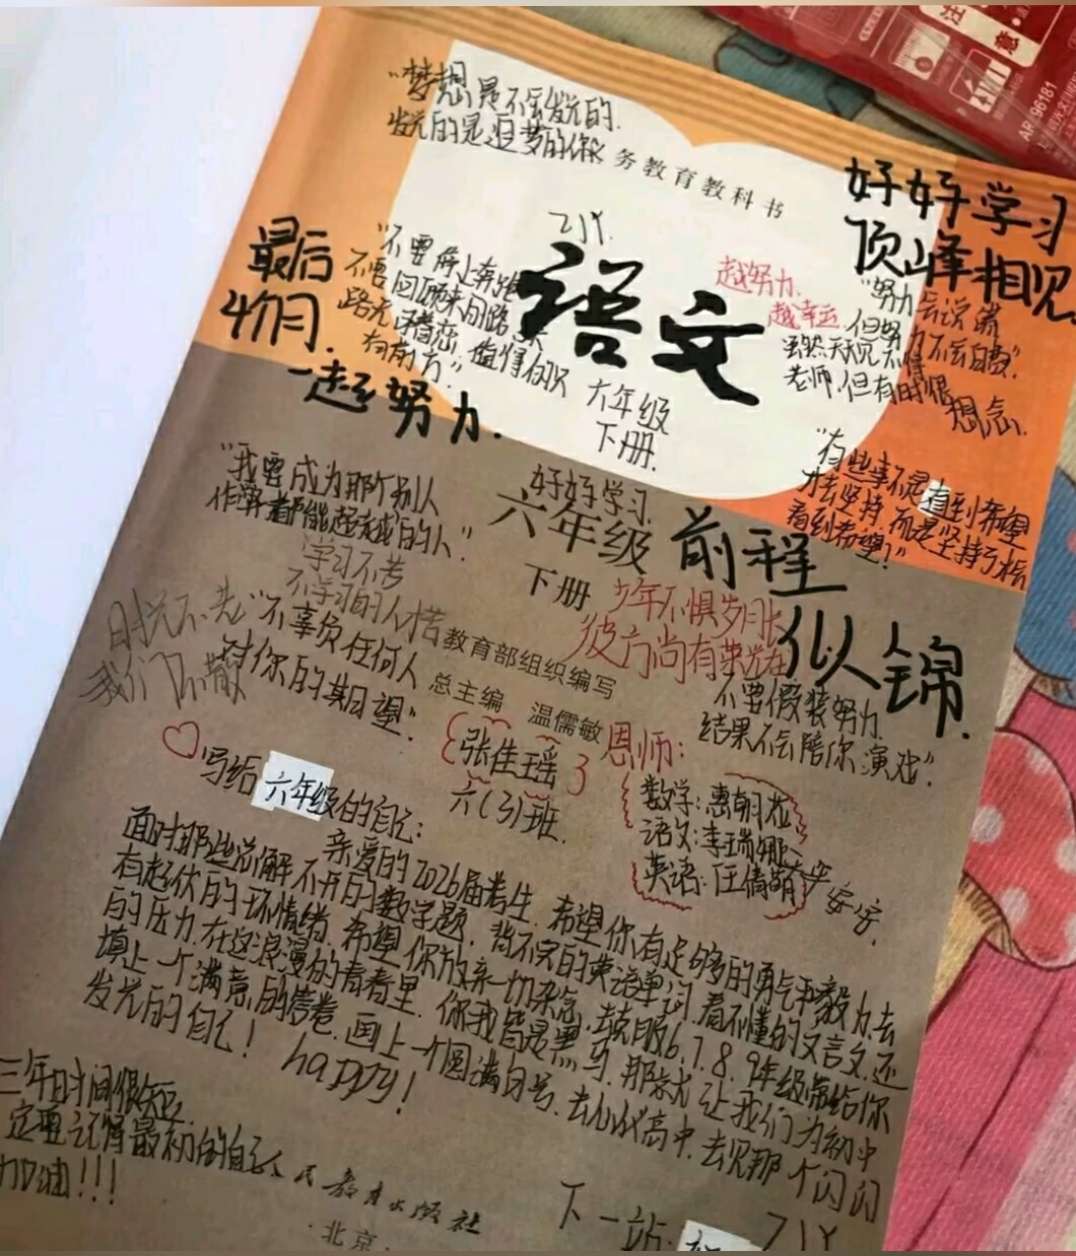 "梦想是不会发光的.
发光的是追梦的你
务教育教科书
好好学习
顶峰相见.
最后
4个月.
一起努力.
"不要停止奔跑
不要回顾来的路
路无可眷恋.值得
有前方."
ZJY.
语文
六年级
下册.
越努力.
越幸运
"努力会说谎
但努力不会白费"
虽然天天见
老师.但有时很想念.
"有些事不是看到希望
才去坚持.而是坚持了才
看到希望!"
"我要成为那个别人
作弊都不能超越的人."
学习不苦
不学习的人苦
时光不老
我们不散
"不辜负任何人
对你的期望"
好好学习.
前程
似锦.
六年级
下册
少年不惧岁月长
彼方尚有荣光在
教育部组织编写
总主编 温儒敏
不要假装努力.
结果不会陪你演戏".
张佳瑶
六(3)班.
恩师:
数学:惠朝
语文:李瑞娜
英语:任倩萌
写给六年级的自己:
亲爱的2026届考生.希望你有足够的勇气和毅力.去
面对那些总解不开的数学题.背不完的英语单词.看不懂的文言文.还
有起伏的坏情绪.希望你放弃一切杂念.去克服6.7.8.9年级带给你
的压力.在这浪漫的青春里.你我皆是黑马.那就让我们为初中
填上一个满意的答卷.画上一个圆满句号.去心仪高中.去见那个闪闪
发光的自己! happy!
三年时间很短.
一定要记得最初的自己
加油!!!
人民教育出版社
·北京·
下一站:
ZJY
注
意
AR 96181